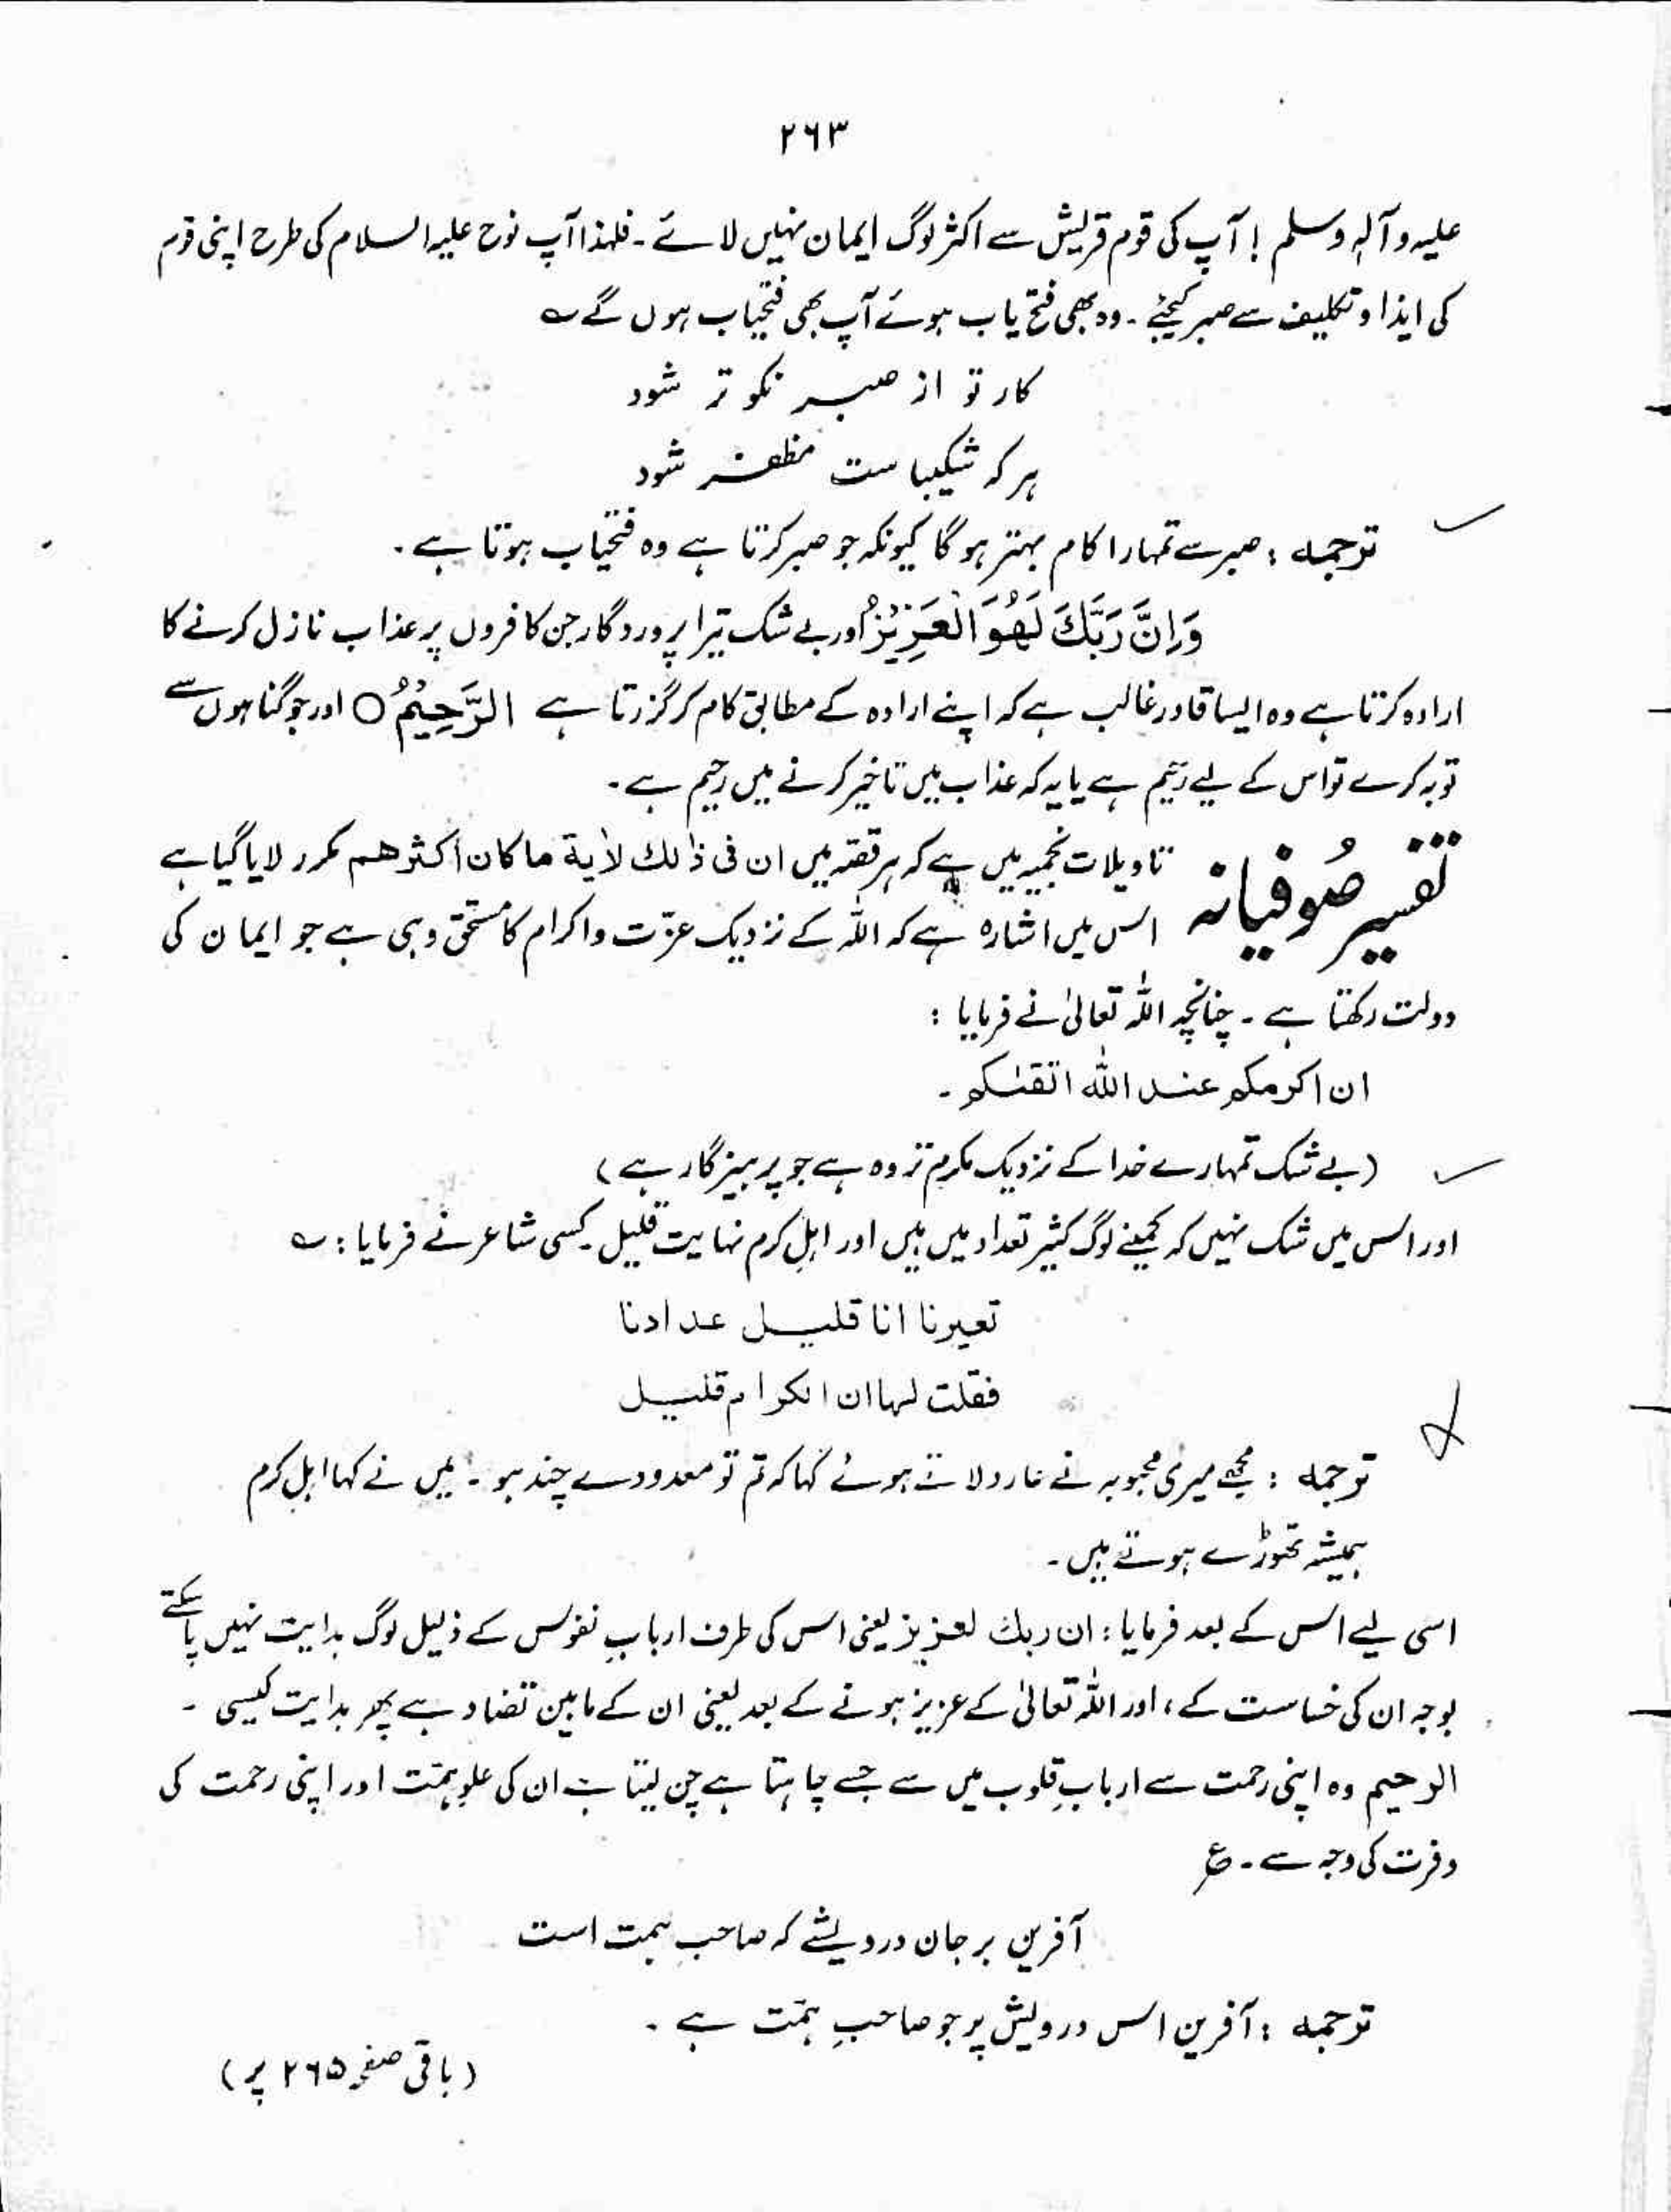 ۲۶۳
علیہ وآلہٖ وسلم ! آپ کی قوم قریش سے اکثر لوگ ایمان نہیں لائے ۔ فلہٰذا آپ نوح علیہ السلام کی طرح اپنی قوم
کی ایذا و تکلیف سے صبر کیجئے ۔ وہ بھی فتح یاب ہوئے آپ بھی فتحیاب ہوں گے ؎
کار تو از صبر نکو تر شود
ہر کہ شکیباست مظفر شود
ترجمہ : صبر سے تمہارا کام بہتر ہوگا کیونکہ جو صبر کرتا ہے وہ فتحیاب ہوتا ہے ۔
وَاِنَّ رَبَّكَ لَهُوَ الْعَزِيْزُ اور بے شک تیرا پروردگار جن کافروں پر عذاب نازل کرنے کا
ارادہ کرتا ہے وہ ایسا قادر غالب ہے کہ اپنے ارادہ کے مطابق کام کر گزرتا ہے الرَّحِيْمُ ○ اور جو گناہوں سے
توبہ کرے تو اس کے لیے رحیم ہے یا یہ کہ عذاب میں تاخیر کرنے میں رحیم ہے ۔
تفسیر صُوفیانہ تاویلات نجمیہ میں ہے کہ ہر قصّہ میں ان فی ذٰلك لاٰیة ما كان اكثرهم مکرر لایا گیا ہے
اس میں اشارہ ہے کہ اللہ کے نزدیک عزّت و اکرام کا مستحق وہی ہے جو ایمان کی
دولت رکھتا ہے ۔ چنانچہ اللہ تعالیٰ نے فرمایا :
ان اكرمكم عند الله اتقٰكم ۔
(بے شک تمہارے خدا کے نزدیک مکرم تر وہ ہے جو پرہیزگار ہے)
اور اس میں شک نہیں کہ کمینے لوگ کثیر تعداد میں ہیں اور اہلِ کرم نہایت قلیل ۔ کسی شاعر نے فرمایا : ؎
تعيرنا انا قليل عدادنا
فقلت لها ان الكرام قليل
ترجمہ : مجھے میری محبوبہ نے عار دلاتے ہوئے کہا کہ تم تو معدودے چند ہو ۔ میں نے کہا اہل کرم
ہمیشہ تھوڑے ہوتے ہیں ۔
اسی لیے اس کے بعد فرمایا : ان ربك لعزيز یعنی اس کی طرف اربابِ نفوس کے ذلیل لوگ ہدایت نہیں پا سکتے
بوجہ ان کی خساست کے ، اور اللہ تعالیٰ کے عزیز ہونے کے بعد یعنی ان کے مابین تضاد ہے پھر ہدایت کیسی ۔
الرحيم وہ اپنی رحمت سے اربابِ قلوب میں سے جسے چاہتا ہے چن لیتا ہے ان کی علوِ ہمّت اور اپنی رحمت کی
وفرت کی وجہ سے ۔ ع
آفرین بر جان درویشے کہ صاحبِ ہمت است
ترجمہ : آفرین اس درویش پر جو صاحبِ ہمّت ہے ۔
(باقی صفحہ ۲۶۵ پر)